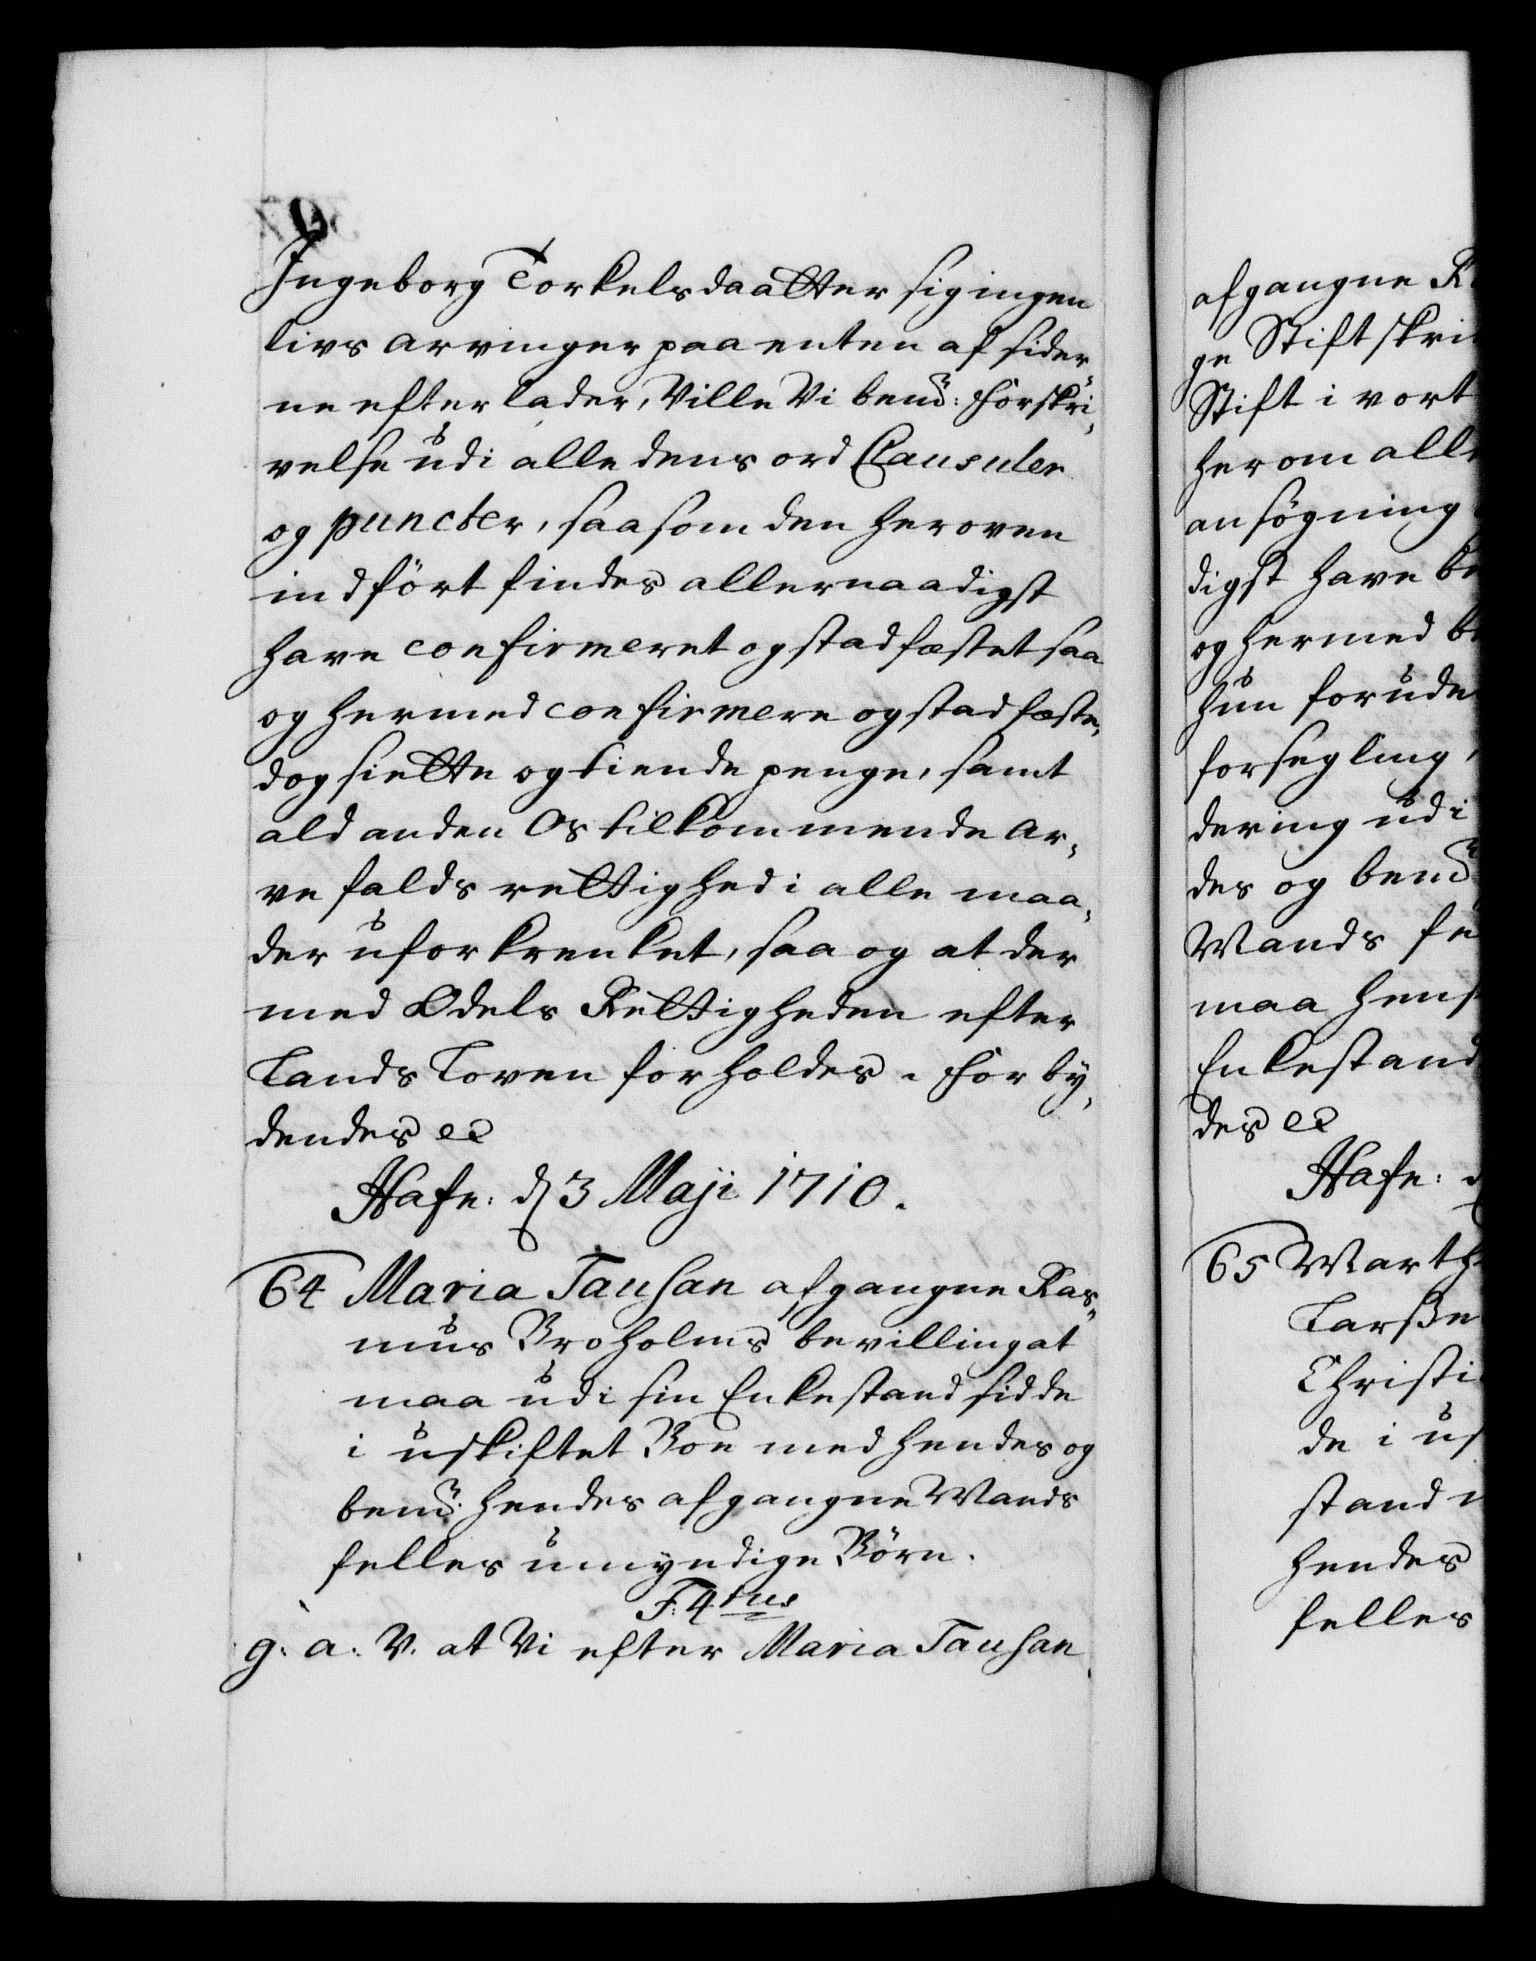 Ingeborg Torkelsdaatter sig ingen
livs arvinger paa enten af sider„
ne efterlader, Ville Vi bemt: Forskri„
velse udi alle dens ord Clausuler
og puncter, saasom den her oven
indfört findes allernaadigst
have confirmeret og stadfæstet saa
og hermed confirmere og stadfæste,
dog siette og tiende penge, samt
ald anden Os tilkommende Ar„
ve falds rettighed i alle maa„
der uforkrenket, saa og at der
med Odels Rettigheden efter
Lands Loven forholdes. Forby„
dendes etc
Hafn: d 3 Maji 1710.
64 Maria Tausan afgangne Ras„
mus Broholms bevilling at
maa udi sin Enkestand sidde
i uskiftet Boe med hendes og
bemte: hendes afgangne Mands
felles umyndige Börn.
F: 4tus
G: A: V. at Vi efter Maria Tausan
afgangne R
ge Stiftskri
Stift i vort
herom alle
ansögning
digst have be
og hermed be
hun forude
forsegling,
dering udi
des og bemte
Mands fe
maa hens
Enkestand
des etc
Hafn: d
65 Marth
Larsse
Christi
de i us
stand
hendes
felles